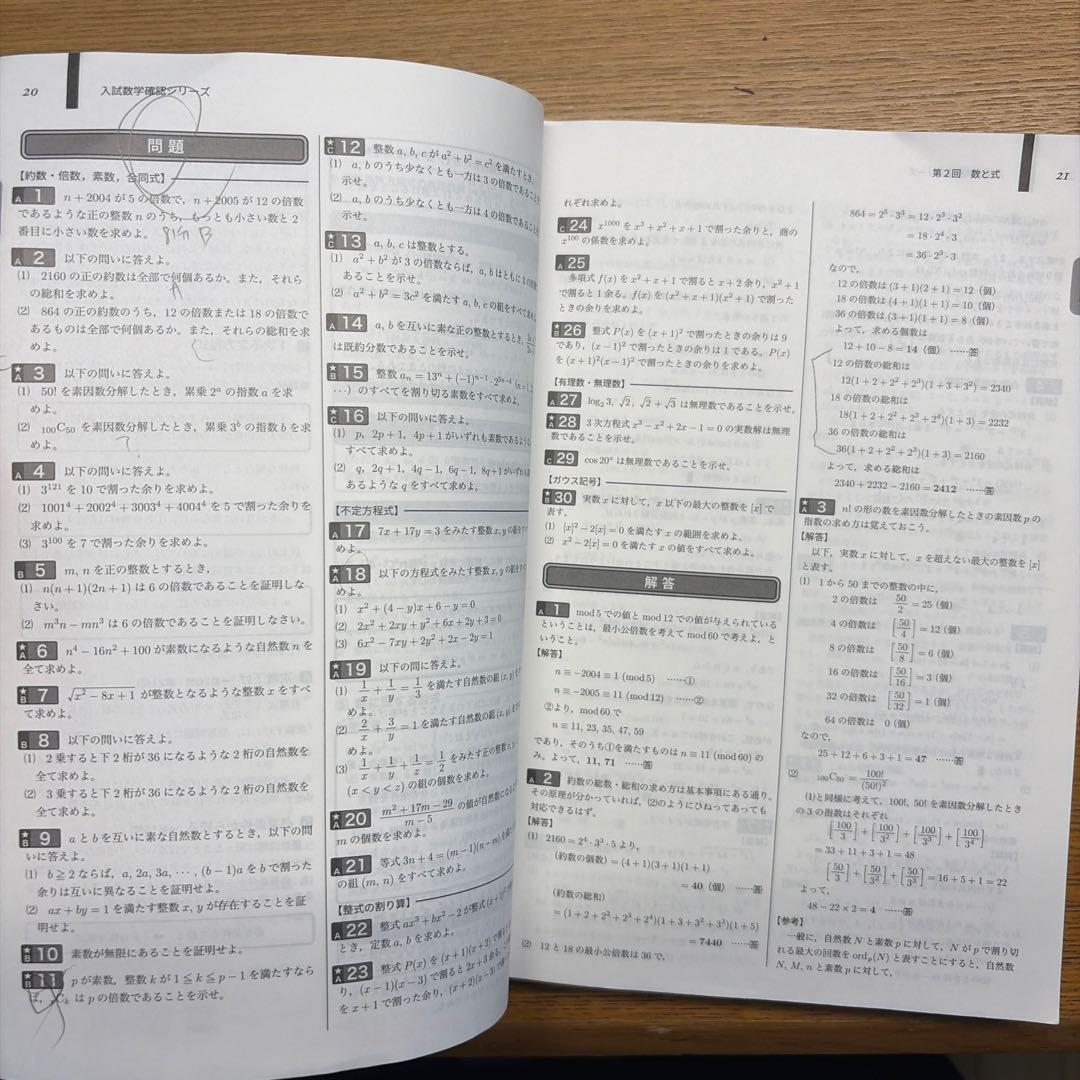 20
入試数学確認シリーズ
問題
【約数・倍数，素数，合同式】
A 1 n+2004 が 5 の倍数で，n+2005 が 12 の倍数
であるような正の整数 n のうち，もっとも小さい数と 2
番目に小さい数を求めよ。
A 2 以下の問いに答えよ。
(1) 2160 の正の約数は全部で何個あるか。また，それら
の総和を求めよ。
(2) 864 の正の約数のうち，12 の倍数または 18 の倍数で
あるものは全部で何個あるか。また，それらの総和を求
めよ。
★A 3 以下の問いに答えよ。
(1) 50! を素因数分解したとき，累乗 2ᵃ の指数 a を求
めよ。
(2) ₁₀₀C₅₀ を素因数分解したとき，累乗 3ᵇ の指数 b を求
めよ。
★A 4 以下の問いに答えよ。
(1) 3¹²¹ を 10 で割った余りを求めよ。
(2) 1001⁴+2002⁴+3003⁴+4004⁴ を 5 で割った余りを
求めよ。
(3) 3¹⁰⁰ を 7 で割った余りを求めよ。
B 5 m, n を正の整数とするとき，
(1) n(n+1)(2n+1) は 6 の倍数であることを証明しな
さい。
(2) m³n−mn³ は 6 の倍数であることを証明しなさい。
★A 6 n⁴−16n²+100 が素数になるような自然数 n を
全て求めよ。
★B 7 √(x²−8x+1) が整数となるような整数 x をすべ
て求めよ。
B 8 以下の問いに答えよ。
(1) 2 乗すると下 2 桁が 36 になるような 2 桁の自然数を
全て求めよ。
(2) 3 乗すると下 2 桁が 36 になるような 2 桁の自然数を
全て求めよ。
★B 9 a と b を互いに素な自然数とするとき，以下の問
いに答えよ。
(1) b≧2 ならば，a, 2a, 3a, …, (b−1)a を b で割った
余りは互いに異なることを証明せよ。
(2) ax+by=1 を満たす整数 x, y が存在することを証
明せよ。
★B 10 素数が無限にあることを証明せよ。
★B 11 p が素数，整数 k が 1≦k≦p−1 を満たすなら
ば，ₚCₖ は p の倍数であることを示せ。
★C 12 整数 a, b, c が a²+b²=c² を満たすとき，
(1) a, b のうち少なくとも一方は 3 の倍数であること
示せ。
(2) a, b のうち少なくとも一方は 4 の倍数であること
示せ。
★C 13 a, b, c は整数とする。
(1) a²+b² が 3 の倍数ならば，a, b はともに 3 の
あることを示せ。
(2) a²+b²=3c² を満たす a, b, c の組をすべて
★A 14 a, b を互いに素な正の整数とするとき，
は既約分数であることを示せ。
★B 15 整数 aₙ=13ⁿ+(−1)ⁿ⁻¹·2⁵ⁿ⁻⁴
…) のすべてを割り切る素数をすべて求め
★C 16 以下の問いに答えよ。
(1) p, 2p+1, 4p+1 がいずれも素数であるよう
すべて求めよ。
(2) q, 2q+1, 4q−1, 6q−1, 8q+1 がいずれ
あるような q をすべて求めよ。
【不定方程式】
★A 17 7x+17y=3 をみたす整数 x, y の組を
めよ。
★A 18 以下の方程式をみたす整数 x, y の組を
めよ。
(1) x²+(4−y)x+6−y=0
(2) 2x²+2xy+y²+6x+2y+3=0
(3) 6x²−7xy+2y²+2x−2y=1
★A 19 以下の問に答えよ。
(1) 1/x+1/y=1/3 を満たす自然数の組 (x, y)
めよ。
(2) 2/x+3/y=1 を満たす自然数の組 (x, y)
めよ。
(3) 1/x+1/y+1/z=1/2 をみたす正の整数
(x<y<z) の組の個数を求めよ。
★A 20 (m²+17m−29)/(m−5) の値が自然数に
m の個数を求めよ。
★A 21 等式 3n+4=(m−1)(n−m) を満た
の組 (m, n) をすべて求めよ。
【整式の割り算】
★A 22 整式 ax³+bx²−2 が整式
とき，定数 a, b を求めよ。
★A 23 整式 P(x) を (x+1)(x+2) で割
り，(x−1)(x−3) で割ると 2x+3 余る。
を x+1 で割った余り，(x+2)
第2回 数と式
21
れぞれ求めよ。
C 24 x¹⁰⁰⁰ を x³+x²+x+1 で割った余りと，商の
x¹⁰⁰ の係数を求めよ。
A 25
多項式 f(x) を x²+x+1 で割ると x+2 余り，x²+1
で割ると 1 余る。f(x) を (x²+x+1)(x²+1) で割った
ときの余りを求めよ。
★B 26 整式 P(x) を (x+1)² で割ったときの余りは 9
であり，(x−1)² で割ったときの余りは 1 である。P(x)
を (x+1)²(x−1)² で割ったときの余りを求めよ。
【有理数・無理数】
★A 27 log₂3, √2, √2+√3 は無理数であることを示せ。
★A 28 3 次方程式 x³−x²+2x−1=0 の実数解は無理
数であることを示せ。
C 29 cos20° は無理数であることを示せ。
【ガウス記号】
★B 30 実数 x に対して，x 以下の最大の整数を [x] で
表す。
(1) [x]²−2[x]=0 を満たす x の範囲を求めよ。
(2) x²−2[x]=0 を満たす x の値をすべて求めよ。
解答
A 1 mod 5 での値と mod 12 での値が与えられている
ということは，最小公倍数を考えて mod 60 で考えよ，と
いうこと。
【解答】
n≡−2004≡1 (mod 5) ……①
n≡−2005≡11 (mod 12) ……②
②より，mod 60 で
n≡11, 23, 35, 47, 59
であり，そのうち①を満たすものは n≡11 (mod 60) の
み。よって，11, 71 ……答
A 2 約数の総数・総和の求め方は基本事項にある通り。
その原理が分かっていれば，(2)のようにひねってあっても
対応できるはず。
【解答】
(1) 2160=2⁴·3³·5 より，
(約数の個数)=(4+1)(3+1)(1+1)
=40 (個) ……答
(約数の総和)
=(1+2+2²+2³+2⁴)(1+3+3²+3³)(1+5)
=7440 ……答
(2) 12 と 18 の最小公倍数は 36 で，
864=2⁵·3³=12·2³·3²
=18·2⁴·3
=36·2³·3
なので，
12 の倍数は (3+1)(2+1)=12 (個)
18 の倍数は (4+1)(1+1)=10 (個)
36 の倍数は (3+1)(1+1)=8 (個)
よって，求める個数は
12+10−8=14 (個) ……答
12 の倍数の総和は
12(1+2+2²+2³)(1+3+3²)=2340
18 の倍数の総和は
18(1+2+2²+2³+2⁴)(1+3)=2232
36 の倍数の総和は
36(1+2+2²+2³)(1+3)=2160
よって，求める総和は
2340+2232−2160=2412 ……答
★A 3 n! の形の数を素因数分解したときの素因数 p の
指数の求め方は覚えておこう。
【解答】
以下，実数 x に対して，x を超えない最大の整数を [x]
と表す。
(1) 1 から 50 までの整数の中に，
2 の倍数は 50/2=25 (個)
4 の倍数は [50/4]=12 (個)
8 の倍数は [50/8]=6 (個)
16 の倍数は [50/16]=3 (個)
32 の倍数は [50/32]=1 (個)
64 の倍数は 0 (個)
なので，
25+12+6+3+1=47 ……答
(2) ₁₀₀C₅₀=100!/(50!)²
(1)と同様に考えて，100!, 50! を素因数分解したとき
の 3 の指数はそれぞれ
[100/3]+[100/3²]+[100/3³]+[100/3⁴]
=33+11+3+1=48
[50/3]+[50/3²]+[50/3³]=16+5+1=22
よって，
48−22×2=4 ……答
【参考】
一般に，自然数 N と素数 p に対して，N が p で割り切
れる最大の回数を ordₚ(N) と表すことにすると，自然数
N, M, n と素数 p に対して，